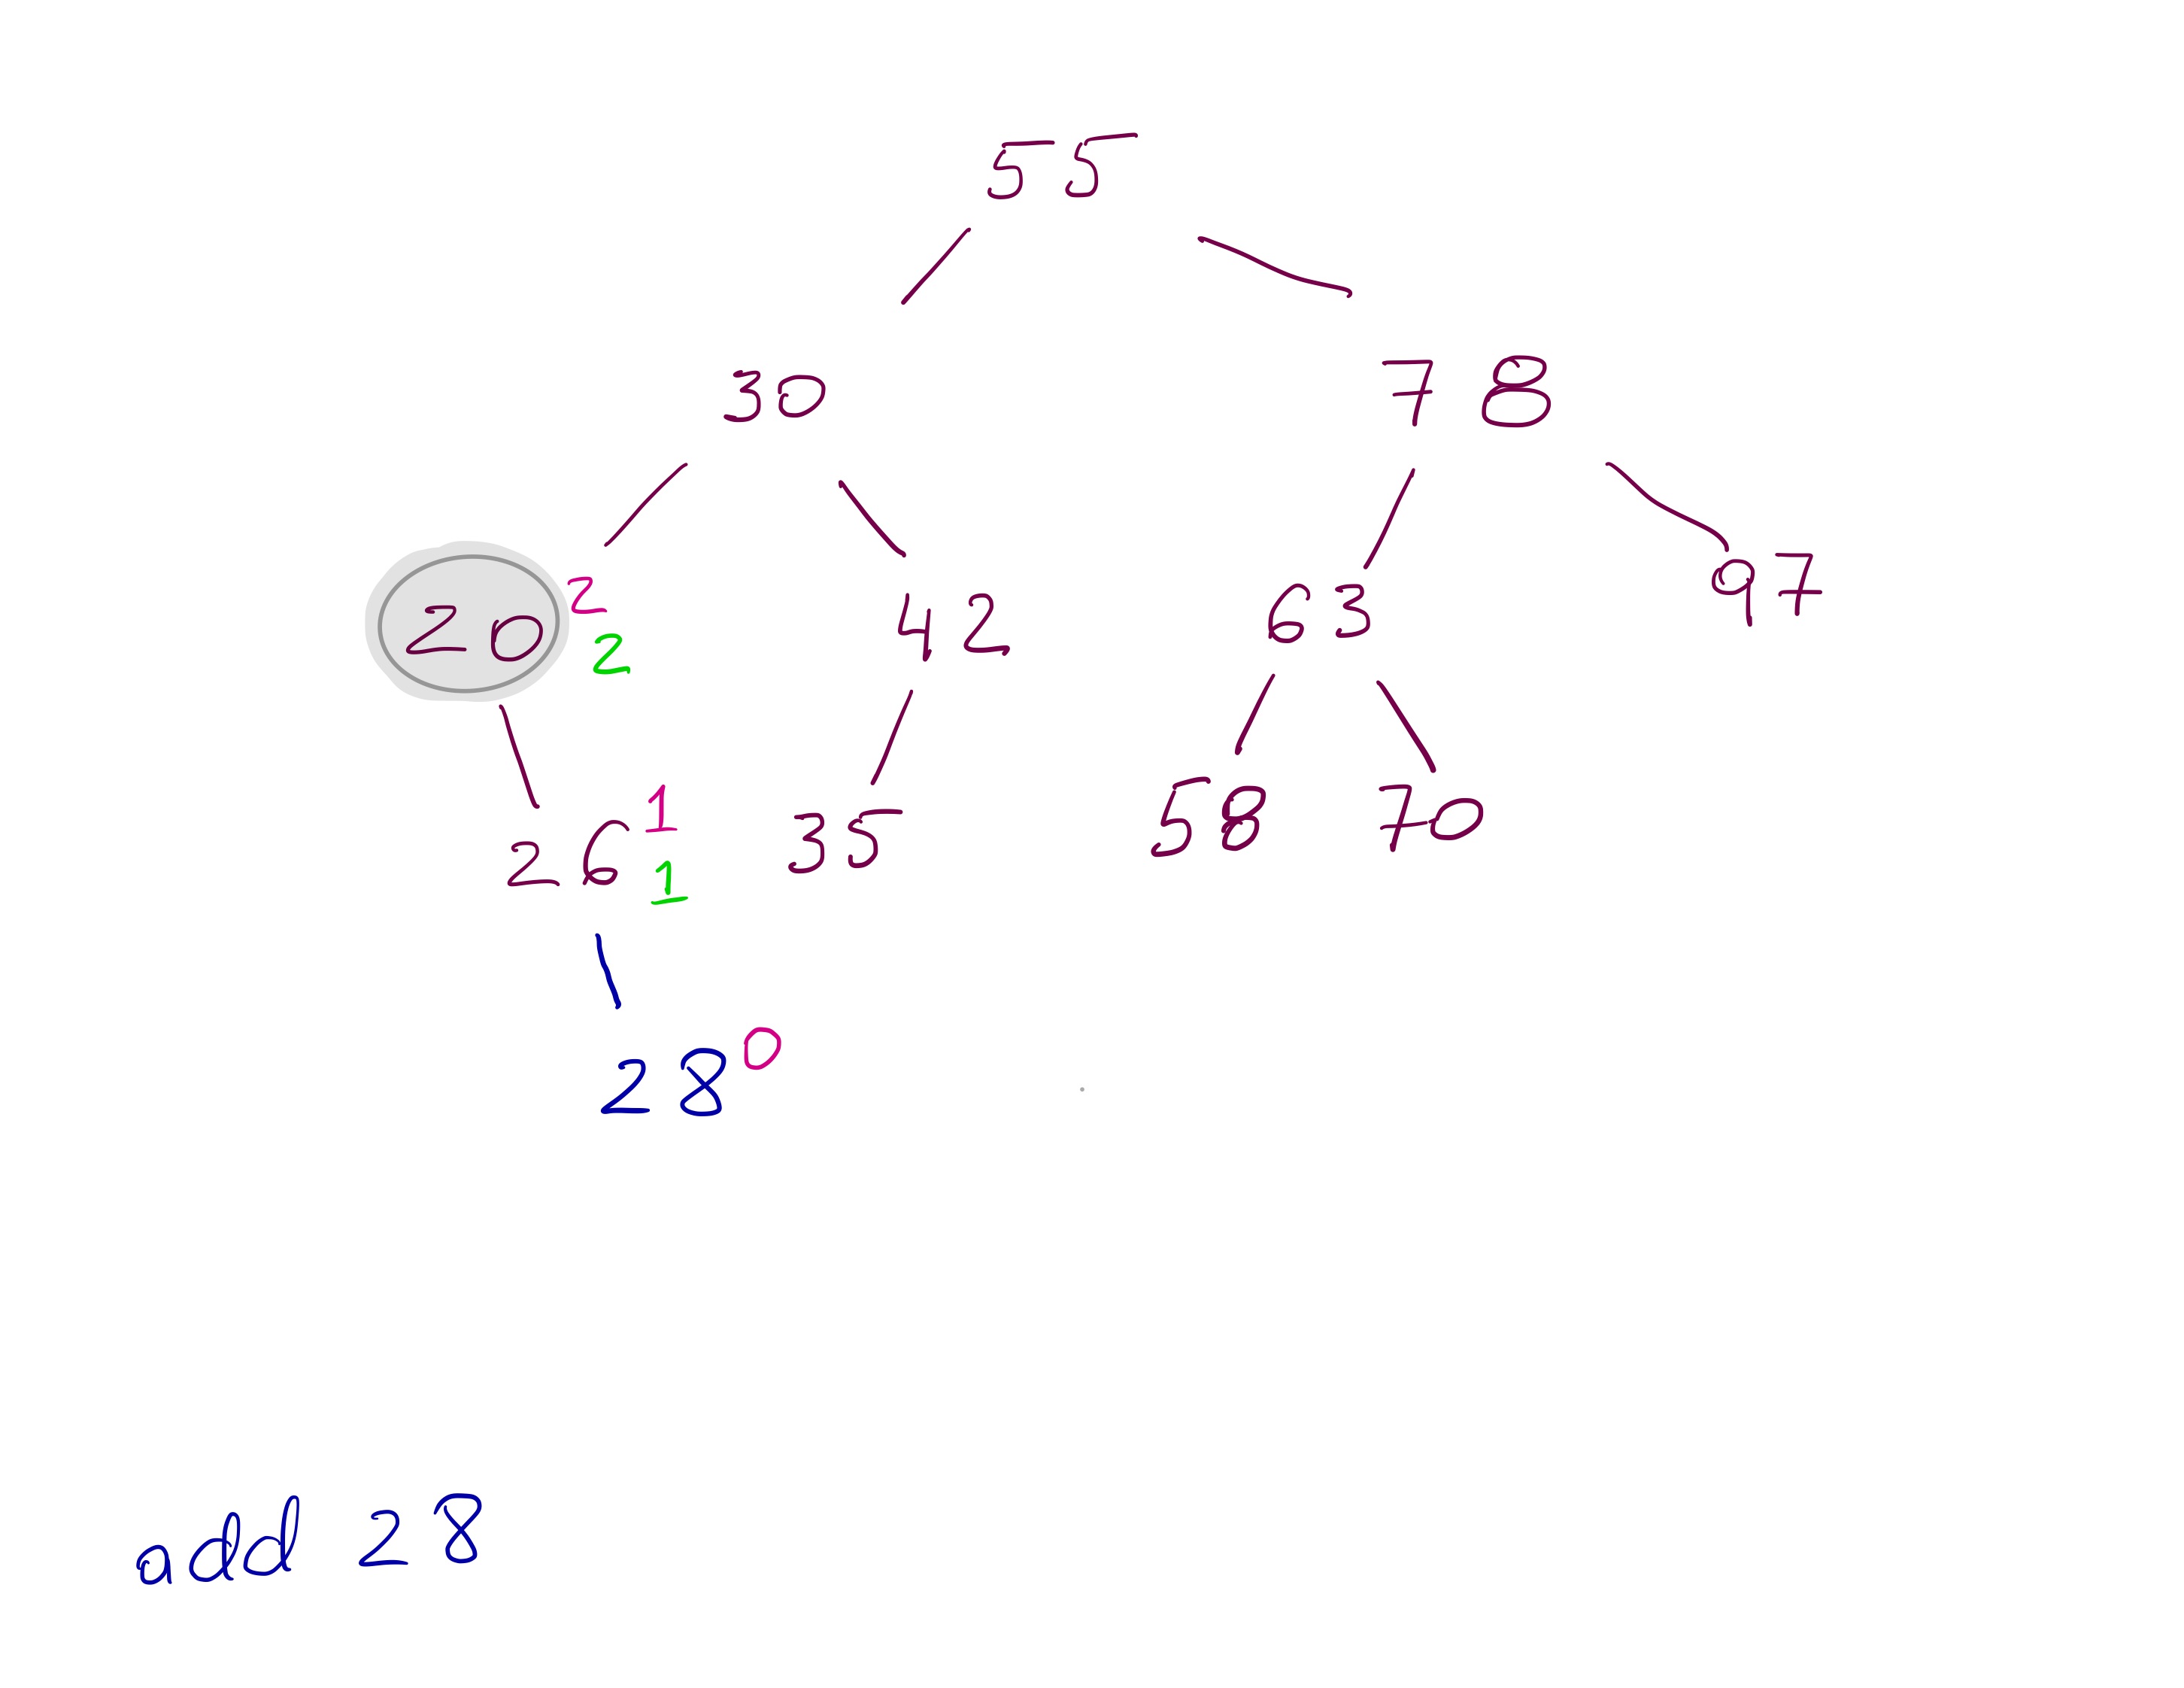 55
30 78
20 2 2 42 63 97
26 1 1 35 58 70
28 0
add 28